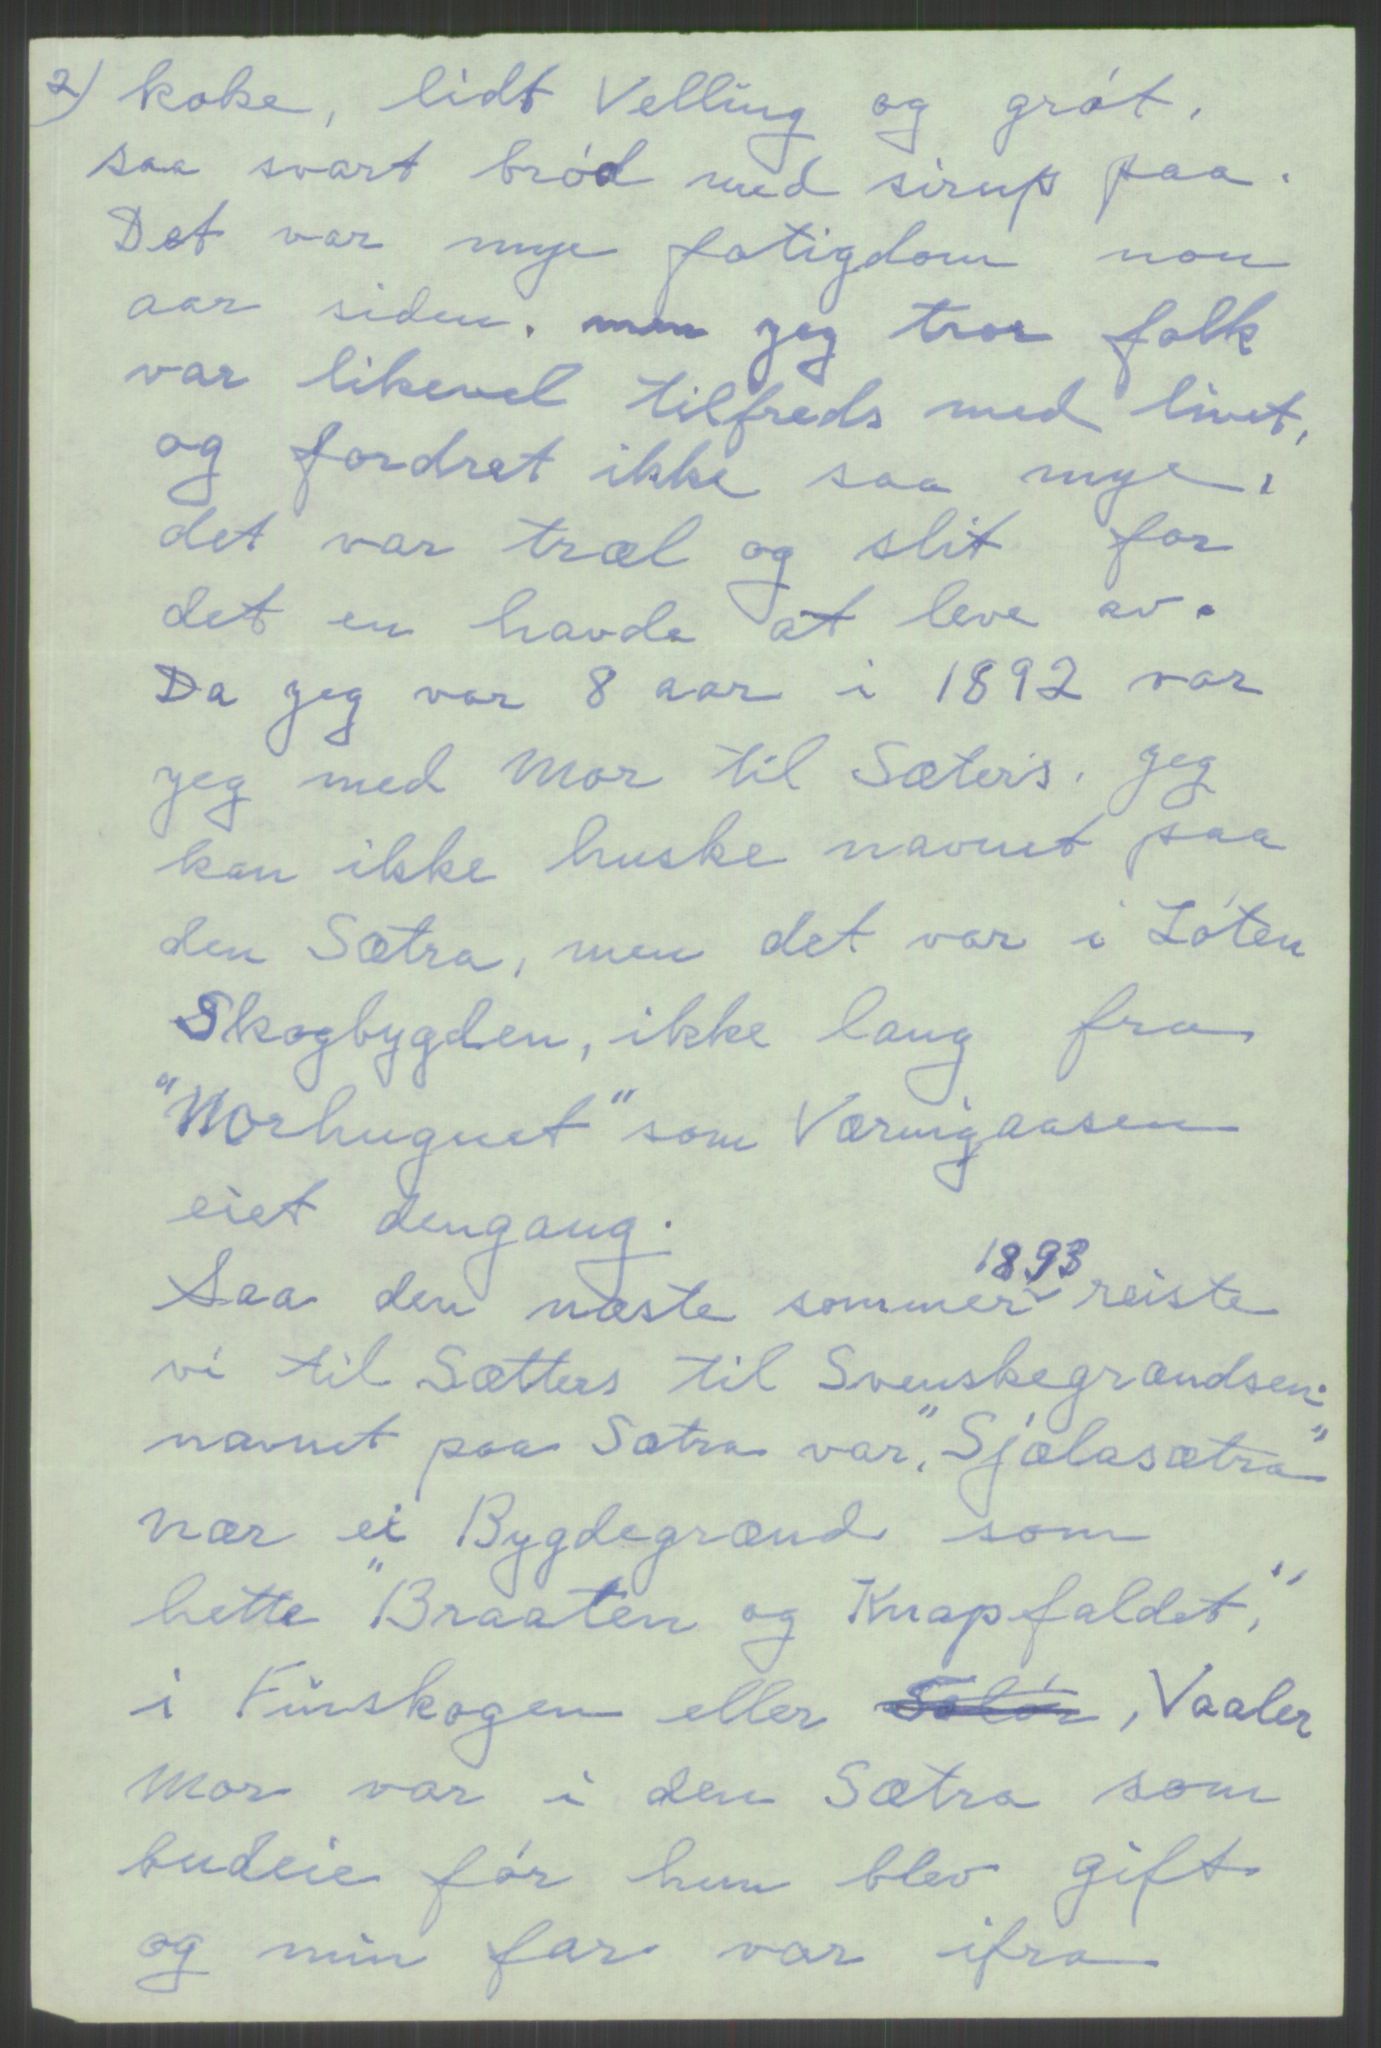 2) koke, lidt Velling og grót,
saa svart bród med sirup paa.
Det var mye fatigdom non
aar siden. men jeg tror folk
var likevel tilfreds med livet,
og fordret ikke saa mye,
det var træl og slit for
det en havde at leve av.
Da jeg var 8 aar i 1892 var
jeg med Mor til Sæters. jeg
kan ikke huske navnet paa
den Sætra, men det var i Lóten
Skogbygden, ikke lang fra
"Morhugnet" som Værnigaasen
eiet dengang.
Saa den næste sommer 1893 reiste
vi til Sætters til Svenskegrændsen.
navnet paa Sætra var, "Sjælasætra"
nær ei Bygdegrænd som
hette "Braaten og Knapfaldet,"
i Finskogen eller Solór, Vaaler
Mor var i den Sætra som
budeie fór hun blev gift
og min far var ifra